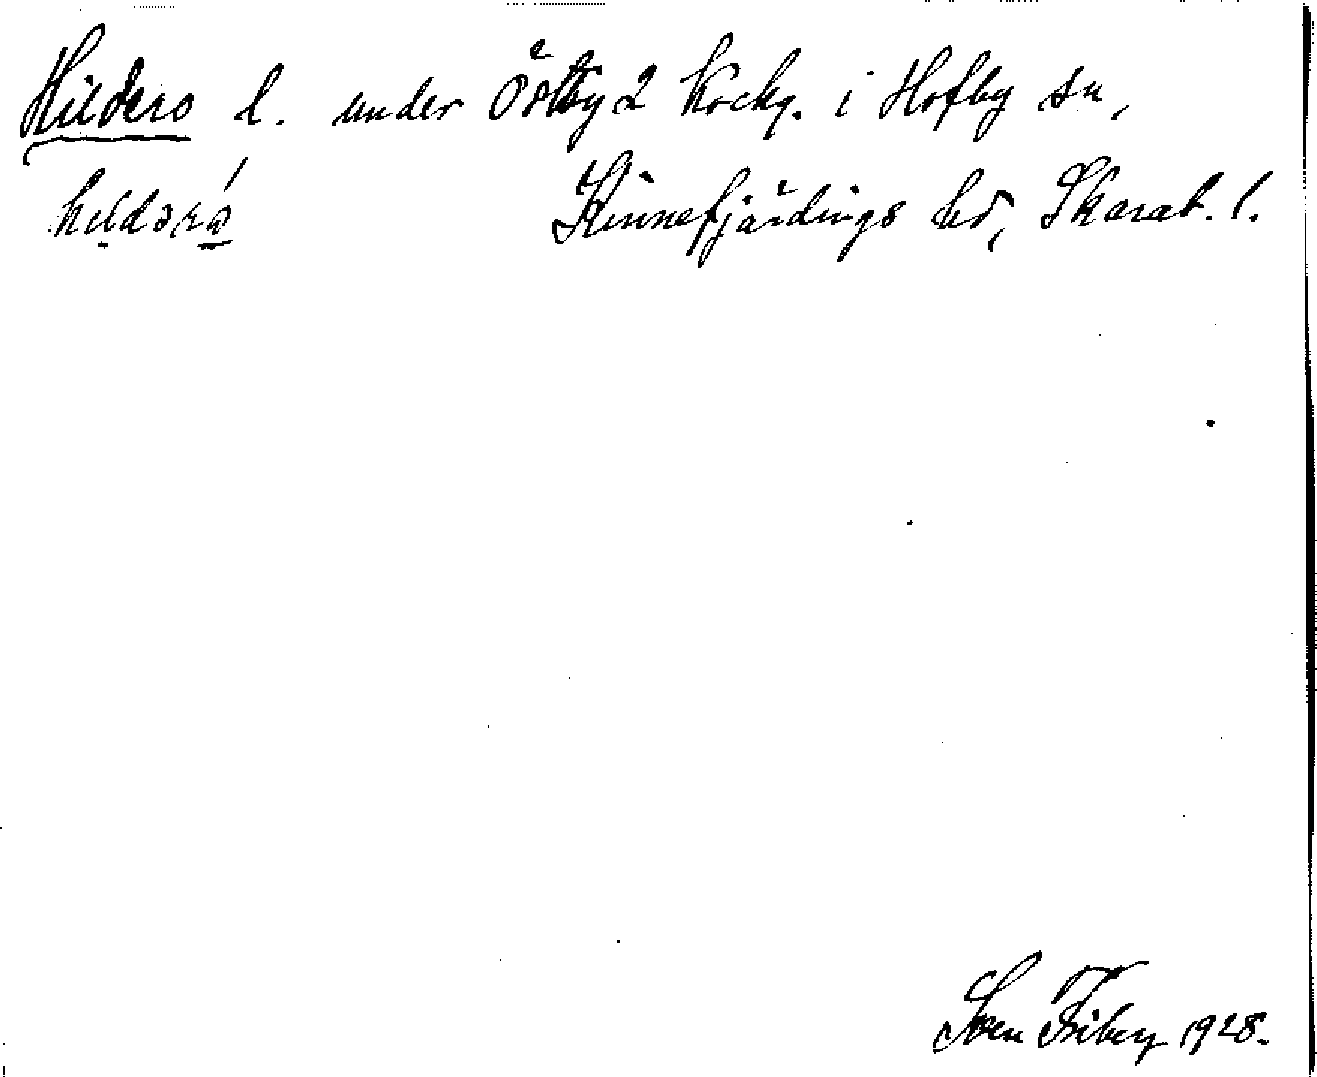 Hilders l. under Östby 2 Kockg. i Hofby sn,
Kinnefjärdings hd, Skarab. l.
Sven Friberg 1928.